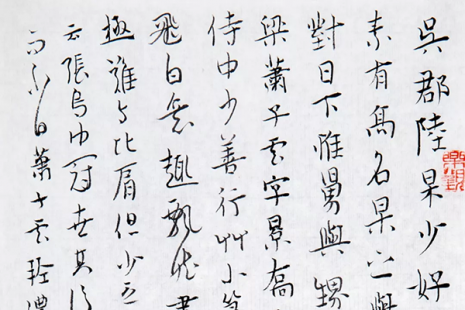 吳郡陸杲少好
素有高名杲
對日下惟舅與甥
梁蕭子雲字景喬
侍中少善行艸小篆
飛白意趣飄然
極難與比肩但少
云張烏巾冠世其後
白蕭子雲輕濃